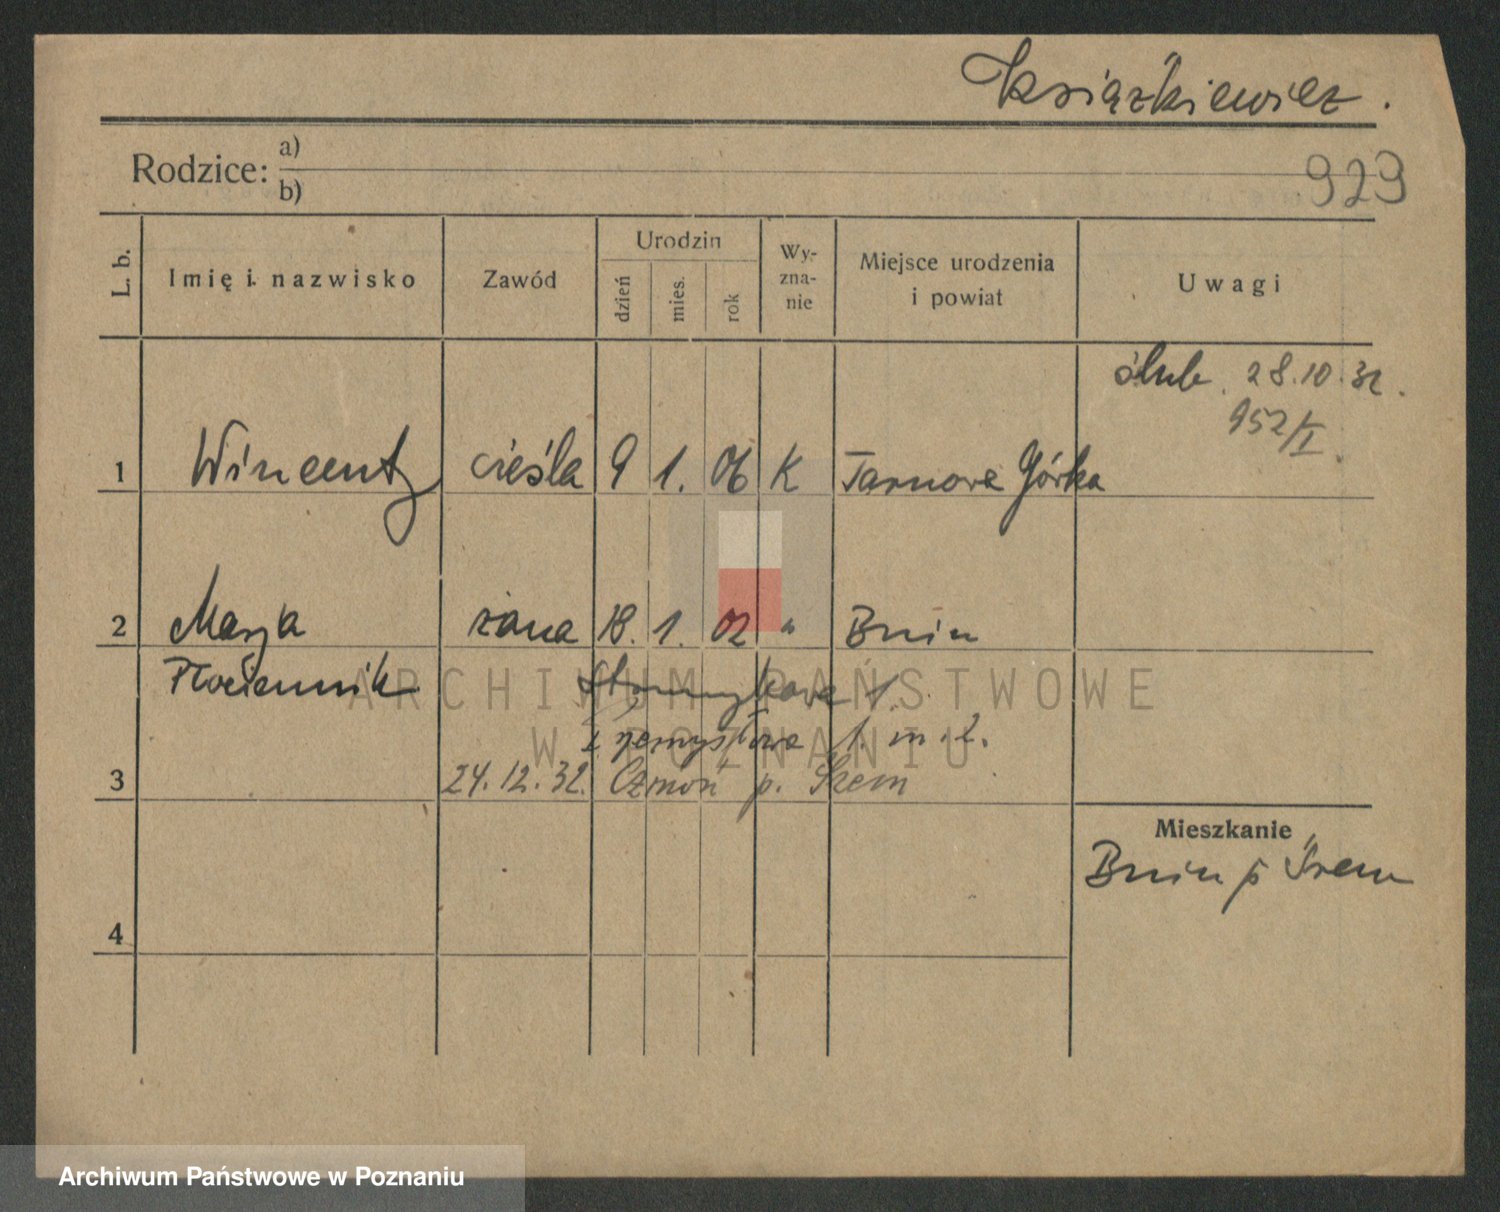 Książkiewicz.
Rodzice: a)
b)
929
L. b.
Imię i nazwisko
Zawód
Urodzin
dzień
mies.
rok
Wy-
zna-
nie
Miejsce urodzenia
i powiat
Uwagi
ślub. 28.10.32.
952/I.
1 Wincenty cieśla 9 1. 06 K Tarnowa Górka
2 Marja żona 18. 1. 02 " Bnin
Płóciennik
1.
1. m. 2.
3 24.12.32. Czmoń p. Śrem
Mieszkanie
Bnin p Śrem
4
ARCHIWUM PAŃSTWOWE
W POZNANIU
Archiwum Państwowe w Poznaniu